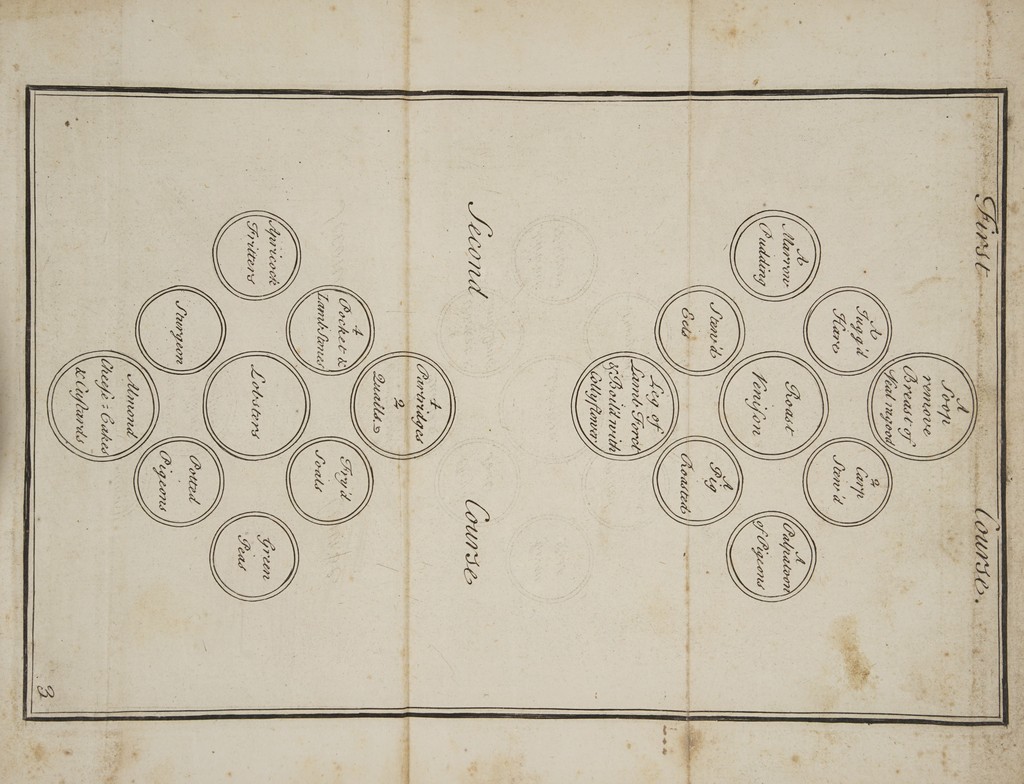 First Course.
A
Soop
remove
Breast of
Veal ragood
A
Jugg'd
Hare
2
Carp
Stew'd
A
Marrow
Pudding
Roast
Veniſon
A
Pulpatoon
of Pigeons
Stew'd
Eels
A
Pig
Roasted
Leg of
Lamb Forct
& Boild with
Collyflower
Second Course
4
Partridges
2
Quails
4
Pocket &
Lamb Stones
Fry'd
Soals
Apricock
Fritters
Lobsters
Green
Peas
Sturgeon
Potted
Pigeons
Almond
Cheeſe=Cakes
& Cuſtards
3